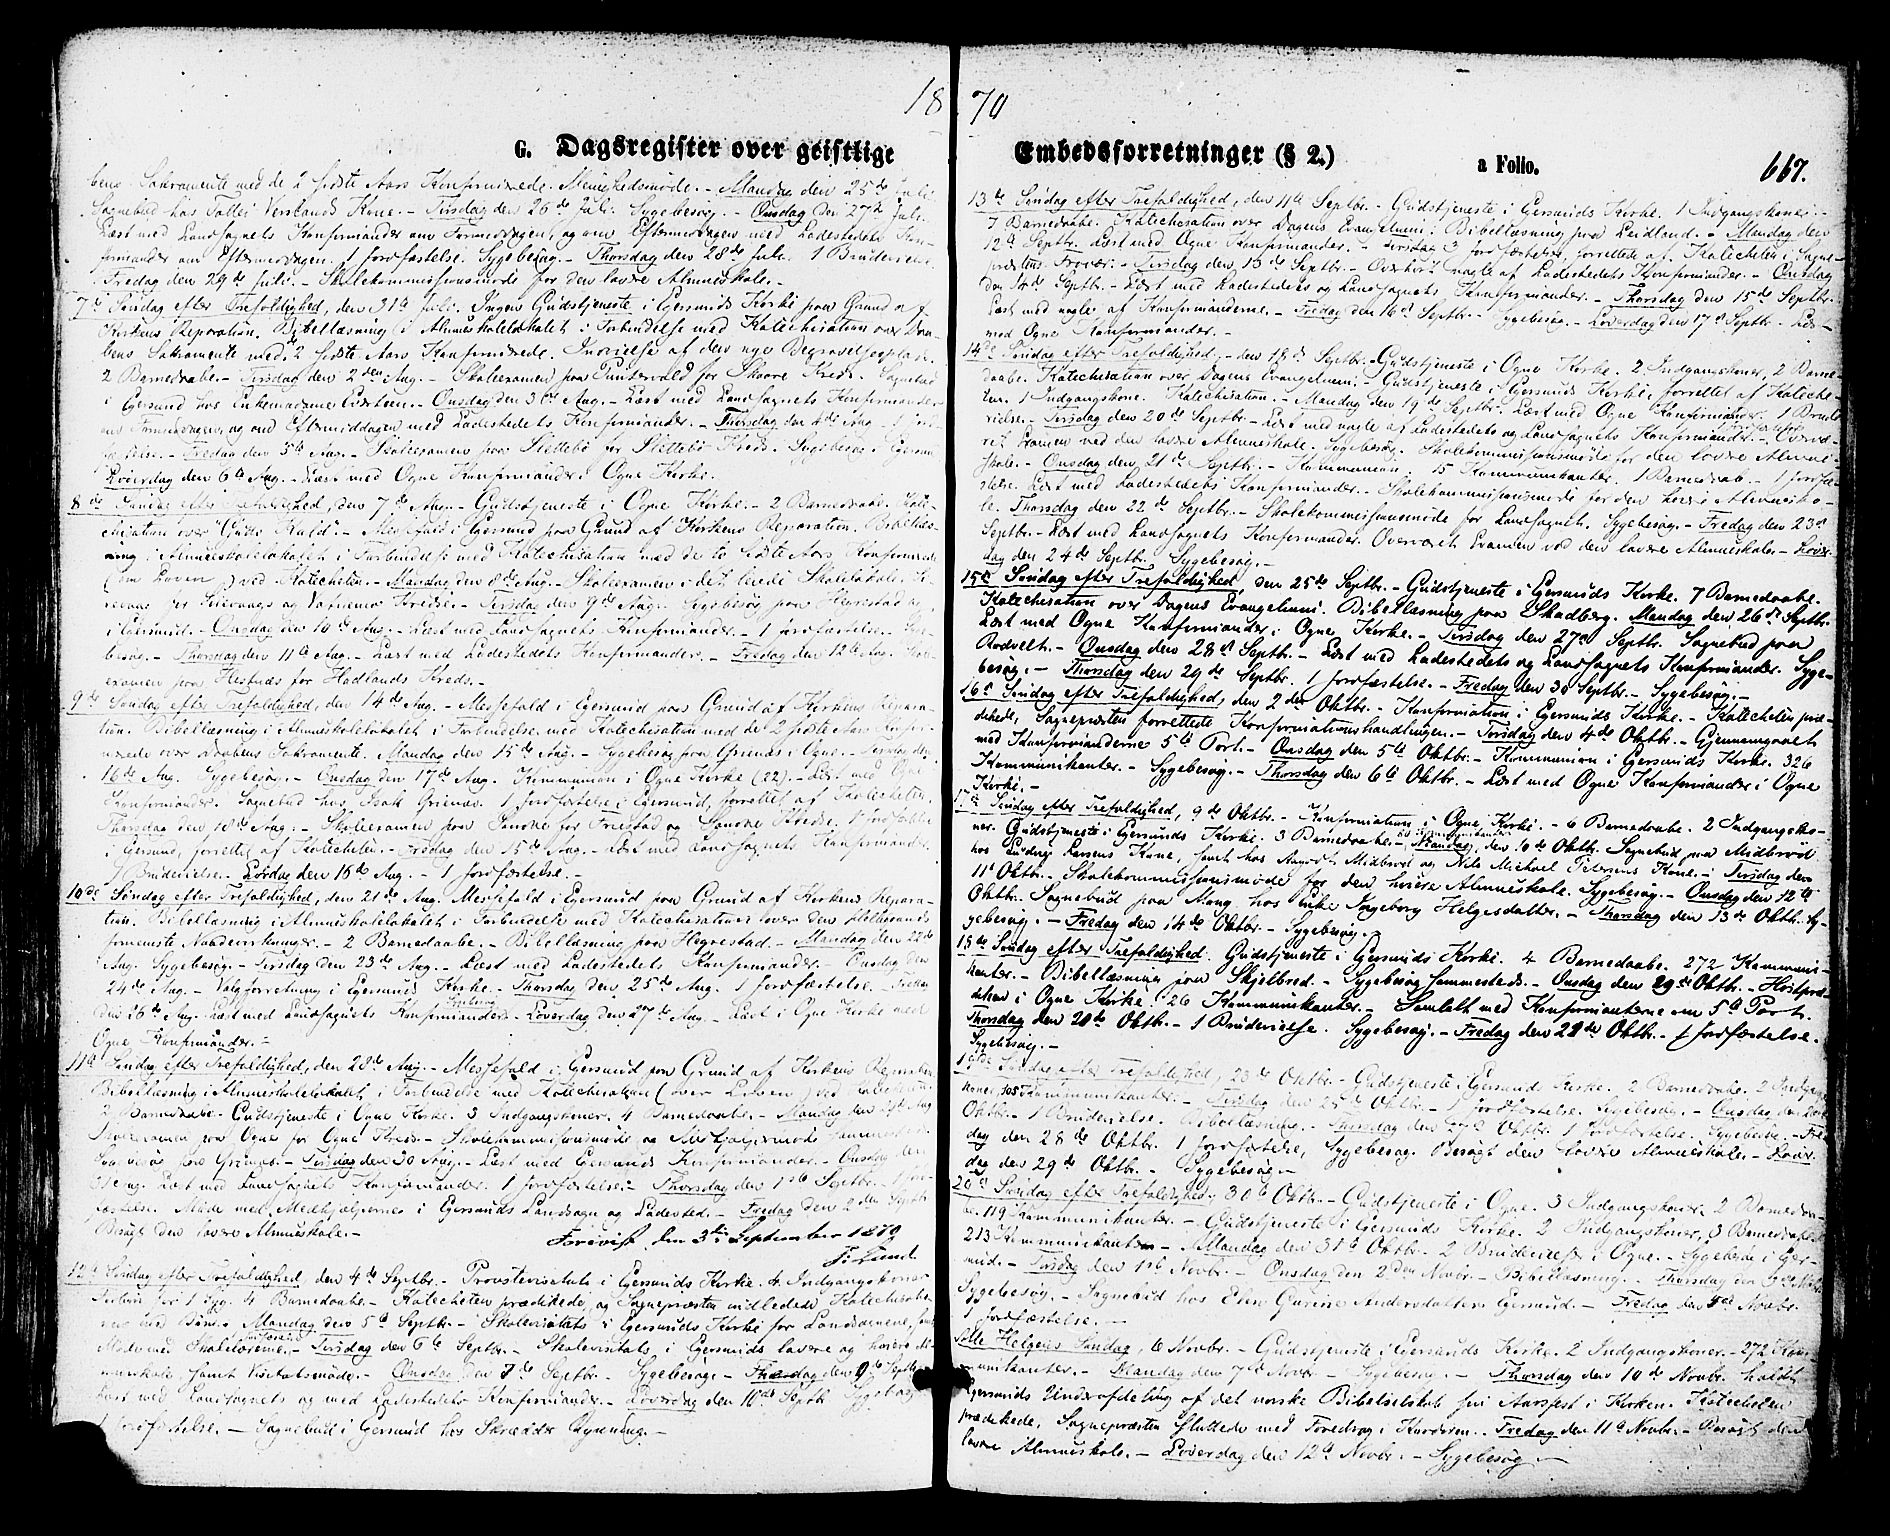 1870
G. Dagsregister over geistlige Embedsforretninger (§ 2.) a Folio. 667.
bens Sakramente med de 2 sidste Aars Konfirmerede. Menighedsmøde. - Mandag den 25de Juli.
Sognebud hos Kone. - Tirsdag den 26de Juli. Sygebesøg. - Onsdag den 27de Juli.
Læst med Landsognets Konfirmander om Formiddagen, og om Eftermiddagen med Ladestedets Kon-
firmander om Eftermiddagen. 1 Jordfæstelse. Sygebesøg. - Thorsdag den 28de Juli. 1 Brudevielse.
Fredag den 29de Juli. - Skolekommissionsmøde for den lavere Almueskole. -
7de Søndag efter Trefoldighed, den 31te Juli. Ingen Gudstjeneste i Egersunds Kirke paa Grund af
Kirkens Reparation. Bibellæsning i Almueskolelokalet i Forbindelse med Katechisation over Daa-
bens Sakramente med 2 sidste Aars Konfirmerede. Indvielse af den nye Begravelsesplads.
2 Barnedaabe. - Tirsdag den 2den Aug. - Skoleexamen paa for Skaare Kreds. Sognebud
i Egersund hos Enkemadame Evertsen. - Onsdag den 3die Aug. - Læst med Landsognets Konfirmander
om Formiddagen, og om Eftermiddagen med Ladestedets Konfirmander. - Thorsdag den 4de Aug. - 1 Jord-
fæstelse. - Fredag den 5te Aug. - Skoleexamen paa Slettebø for Slettebø Kreds. Sygebesøg i Egersund.
Løverdag den 6te Aug. - Læst med Ogne Konfirmander i Ogne Kirke.
8de Søndag efter Trefoldighed, den 7de Aug. - Gudstjeneste i Ogne Kirke. - 2 Barnedaabe. Kate-
chisation over "Guds Kald". - Messefald i Egersund paa Grund af Kirkens Reparation. Bibellæs-
ning i Almueskolelokalet i Forbindelse med Katechisation med de to sidste Aars Konfirmerede
(om Loven) ved Katecheten. - Mandag den 8de Aug. - Skoleexamen i det leiede Skolelokale
for og Kredse. - Tirsdag den 9de Aug. Sygebesøg paa Hegrestad og
i Egersund. - Onsdag den 10de Aug. - Læst med Landsognets Konfirmander. - 1 Jordfæstelse. Syge-
besøg. - Thorsdag den 11te Aug. - Læst med Ladestedets Konfirmander. - Fredag den 12te Aug. Skole-
examen paa Hestnæs for Hadlands Kreds. -
9de Søndag efter Trefoldighed, den 14de Aug. - Messefald i Egersund paa Grund af Kirkens Repara-
tion. Bibellæsning i Almueskolelokalet i Forbindelse med Katechisation med de 2 sidste Aars Konfir-
merede over Daabens Sakramente. Mandag den 15de Aug. - Sygebesøg paa i Ogne. - Tirsdag den
16de Aug. Sygebesøg. - Onsdag den 17de Aug. Kommunion i Ogne Kirke (22). - Læst med Ogne
Konfirmander. Sognebud hos Isak. 1 Jordfæstelse i Egersund, forrettet af Katecheten.
Thorsdag den 18de Aug. - Skoleexamen paa for og Kredse. 1 Jordfæstelse
i Egersund, forrettet af Katecheten. - Fredag den Aug. - Læst med Landsognets Konfirmander.
1 Brudevielse. Lørdag den Aug. - 1 Jordfæstelse. -
10de Søndag efter Trefoldighed, den 21de Aug. Messefald i Egersund paa Grund af Kirkens Repara-
tion. Bibellæsning i Almueskolelokalet i Forbindelse med Katechisation over den
fornemste. - 2 Barnedaabe. - Bibellæsning paa Hegrestad. - Mandag den 22de
Aug. Sygebesøg. - Tirsdag den 23de Aug. - Læst med Ladestedets Konfirmander. - Onsdag den
24de Aug. - Valgforretning i Egersunds Kirke. - Thorsdag den 25de Aug. 1 Jordfæstelse. - Fredag
den 26de Aug. Læst med Landsognets Konfirmander. Løverdag den 27de Aug. - Læst i Ogne Kirke med
Ogne Konfirmander. -
11te Søndag efter Trefoldighed, den 28de Aug. - Messefald i Egersund paa Grund af Kirkens Reparation.
Bibellæsning i Almueskolelokalet i Forbindelse med Katechisation (over Loven) ved Katecheten.
3 Barnedaabe. Gudstjeneste i Ogne Kirke. 3 Indgangskoner. 4 Barnedaabe. - Mandag den 29de Aug.
Skoleexamen paa Ogne for Ogne Kreds. - Skolekommissionsmøde og Medhjælpermøde sammesteds.
Sygebesøg paa. - Tirsdag den 30 Aug. - Læst med Egersunds Konfirmander. - Onsdag den
31 Aug. Læst med Landsognets Konfirmander. 1 Jordfæstelse. - Thorsdag den 1ste Septbr. - 1 Jord-
fæstelse. Møde med Medhjælperne i Egersunds Landsogn og Ladested. - Fredag den 2den Septbr.
Besøgt den lavere Almueskole. -
Forevist den 3die September 1870
F. Lund.
12te Søndag efter Trefoldighed, den 4de Septbr. - Provstevisitats i Egersunds Kirke. 4 Indgangskoner.
Forbøn for 1 Syg. 4 Barnedaabe. - Katecheten prædikede, og Sognepræsten indledede Katechisatio-
nen med Bøn. - Mandag den 5te Septbr. - Skolevisitats i Egersunds Kirke for Landsognene, samt
Møde med Skolelærerne. - Tirsdag den 6te Septbr. - Skolevisitats i Egersunds lavere og høiere Al-
mueskole samt Visitatsmøde. - Onsdag den 7de Septbr. - Sygebesøg. - Fredag den 9de Septbr.
Læst med Landsognets og med Ladestedets Konfirmander. - Løverdag den 10de Septbr. Sygebesøg.
1 Jordfæstelse. - Sognebud i Egersund hos Skrædder. -
13de Søndag efter Trefoldighed, den 11te Septbr. - Gudstjeneste i Egersunds Kirke. 1 Indgangskone. -
7 Barnedaabe. Katechisation over Dagens Evangelium. Bibellæsning paa Leidland. - Mandag den
12te Septbr. Læst med Ogne Konfirmander. - Tirsdag 3 Jordfæstelser, forrettede af Katecheten i Sogne-
præstens Fravær. - Tirsdag den 13de Septbr. - Overhørt nogle af Ladestedets Konfirmander. - Onsdag
den 14de Septbr. - Læst med Ladestedets og Landsognets Konfirmander. - Thorsdag den 15de Septbr.
Læst med nogle af Konfirmanderne. - Fredag den 16de Septbr. - Sygebesøg. - Løverdag den 17de Septbr. Læst
med Ogne Konfirmander. -
14de Søndag efter Trefoldighed, - den 18de Septbr. - Gudstjeneste i Ogne Kirke. 2 Indgangskoner, 2 Barne-
daabe. Katechisation over Dagens Evangelium. - Gudstjeneste i Egersunds Kirke, forrettet af Kateche-
ten. 1 Indgangskone. Katechisation. - Mandag den 19de Septbr. Læst med Ogne Konfirmander. 1 Brude-
vielse. - Tirsdag den 20de Septbr. - Læst med nogle af Ladestedets og Landsognets Konfirmander. - Overvæ-
ret Examen ved den lavere Almueskole. Sygebesøg. Skolekommissionsmøde for den lavere Almue-
skole. - Onsdag den 21de Septbr. - Kommunion. 15 Kommunikanter. 1 Barnedaab. - 1 Jordfæ-
stelse. Læst med Ladestedets Konfirmander. - Skolekommissionsmøde for den høiere Almuesko-
le. Thorsdag den 22de Septbr. - Skolekommissionsmøde for Landsognet. Sygebesøg. - Fredag den 23de
Septbr. - Læst med Landsognets Konfirmander. Overværet Examen ved den lavere Almueskole. - Løver-
dag den 24de Septbr. Sygebesøg. -
15de Søndag efter Trefoldighed, den 25de Septbr. - Gudstjeneste i Egersunds Kirke. 7 Barnedaabe.
Katechisation over Dagens Evangelium. Bibellæsning paa Skadberg. Mandag den 26de Septbr.
Læst med Ogne Konfirmander i Ogne Kirke. - Tirsdag den 27de Septbr. Sognebud paa
Rodvelt. - Onsdag den 28de Septbr. - Læst med Ladestedets og Landsognets Konfirmander. Syge-
besøg. - Thorsdag den 29de Septbr. 1 Jordfæstelse. - Fredag den 30 Septbr. - Sygebesøg. -
16de Søndag efter Trefoldighed, den 2den Oktbr. - Konfirmation i Egersunds Kirke. - Katecheten præ-
dikede, Sognepræsten forrettede Konfirmationshandlingen. - Tirsdag den 4de Oktbr. - Gjennemgaaet
med Konfirmanderne 5te Part. - Onsdag den 5te Oktbr. - Kommunion i Egersunds Kirke. 326
Kommunikanter. - Sygebesøg. - Thorsdag den 6te Oktbr. - Læst med Ogne Konfirmander i Ogne
Kirke. -
17de Søndag efter Trefoldighed, 9de Oktbr. - Konfirmation i Ogne Kirke. - 6 Barnedaabe. 2 Indgangsko-
ner. Gudstjeneste i Egersunds Kirke. 3 Barnedaabe. - Mandag, den 10de Oktbr. Sognebud paa Midbrød
hos Ludvig Larsens Kone, samt hos Midbrød og Nils Michael Petersens Kone. - Tirsdag den
11te Oktbr. - Skolekommissionsmøde for den høiere Almueskole. Sygebesøg. - Onsdag den 12te
Oktbr. Sognebud paa Mong hos Enke Ingeborg Helgesdatter. - Thorsdag den 13de Oktbr. Sy-
gebesøg. - Fredag den 14de Oktbr. - Sygebesøg.
18de Søndag efter Trefoldighed. Gudstjeneste i Egersunds Kirke. 4 Barnedaabe. 272 Kommuni-
kanter. - Bibellæsning paa Skjelbred. - Sygebesøg sammesteds. - Onsdag den 19de Oktbr. - Høstpræ-
diken i Ogne Kirke. 26 Kommunikanter. - Samlalt med Konfirmanterne om 5te Part.
Thorsdag den 20de Oktbr. - 1 Brudevielse. Sygebesøg. - Fredag den 21de Oktbr. - 1 Jordfæstelse.
Sygebesøg. -
19de Søndag efter Trefoldighed, 23de Oktbr. - Gudstjeneste i Egersunds Kirke. 2 Barnedaabe. 2 Indgangs-
koner, 105 Kommunikanter. - Tirsdag den 25de Oktbr. - 1 Jordfæstelse. Sygebesøg. - Onsdag den 26de
Oktbr. - 1 Brudevielse. Bibellæsning. - Thorsdag den 27de Oktbr. 1 Jordfæstelse. Sygebesøg. - Fre-
dag den 28de Oktbr. 1 Jordfæstelse, Sygebesøg. Besøgt den lavere Almueskole. - Løver-
dag den 29de Oktbr. - Sygebesøg. -
20de Søndag efter Trefoldighed, 30te Oktbr. - Gudstjeneste i Ogne. 3 Indgangskoner. 2 Barnedaa-
be. 119 Kommunikanter. - Gudstjeneste i Egersunds Kirke. 2 Indgangskoner, 3 Barnedaabe.
213 Kommunikanter. - Mandag den 31te Oktbr. 2 Brudevielser i Ogne. - Sygebesøg i Eger-
sund. - Tirsdag den 1ste Novbr. - Onsdag den 2den Novbr. - Bibellæsning. - Thorsdag den 3die Novbr.
Sygebesøg. - Sognebud hos Elen Gurine Andersdatter Egersund. - Fredag den 4de Novbr.
1 Jordfæstelse. -
Alle Helgens Søndag, 6 Novbr. - Gudstjeneste i Egersunds Kirke. 2 Indgangskoner. - 272 Kom-
munikanter. - Mandag den 7de Novbr. - Sygebesøg. - Thorsdag den 10de Novbr. holdt
Egersunds Underafdeling af det norske Bibelselskab sin Aarsfest i Kirken. Katecheten
prædikede, Sognepræsten sluttede med Foredrag i Kordøren. - Fredag den 11te Novbr. - Besøgt den
lavere Almueskole. - Løverdag den 12te Novbr. - Sygebesøg. -